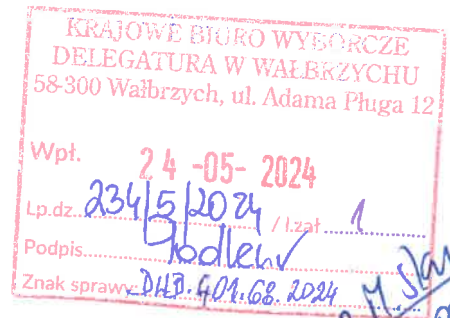 KRAJOWE BIURO WYBORCZE
DELEGATURA W WAŁBRZYCHU
58-300 Wałbrzych, ul. Adama Pługa 12
Wpł. 24 -05- 2024
Lp.dz. 234/5/2024 / l.zał 1
Podpis
Znak sprawy DWB.401.68.2024